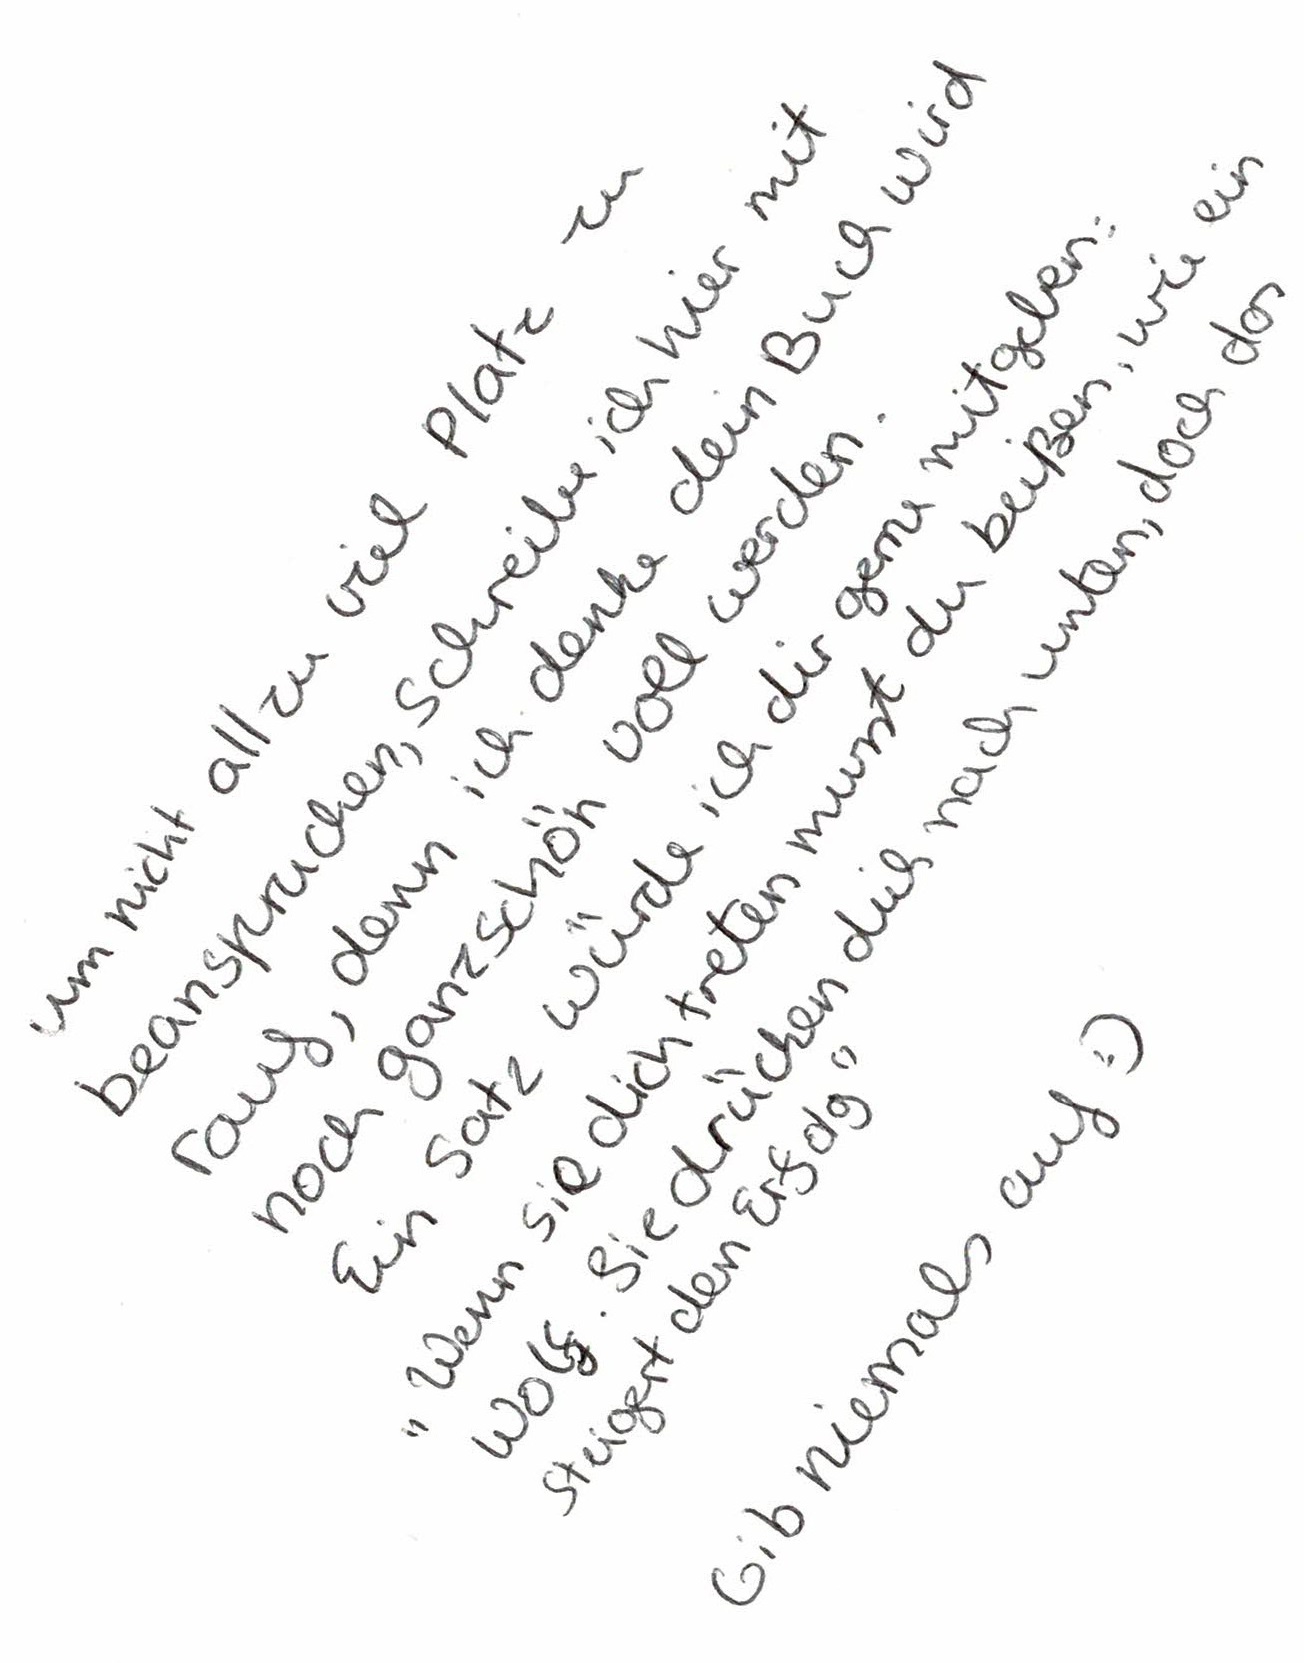 um nicht allzu viel Platz zu
beanspruchen, schreibe ich hier mit
rauf, denn ich denke dein Buch wird
noch ganzschön voll werden.
Ein Satz würde ich dir gerne mitgeben:
"Wenn sie dich treten musst du beißen, wie ein
Wolf. Sie drücken dich nach unten, doch das
steigert den Erfolg"
Gib niemals auf :)